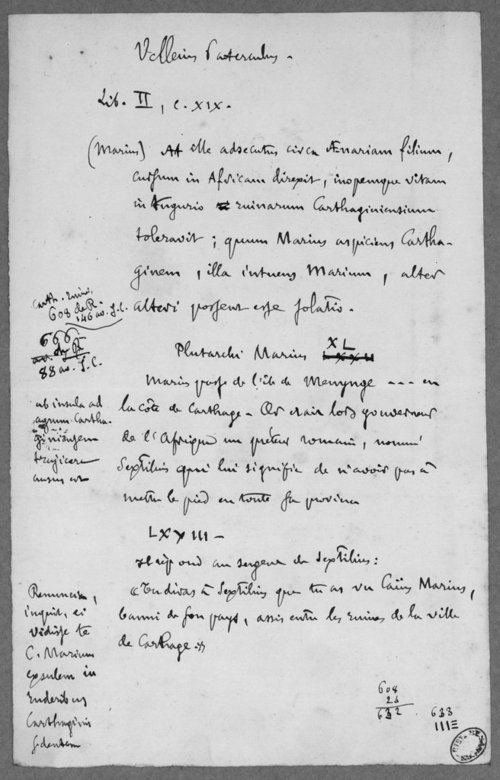 Velleius Paterculus.
Lib. II, c. XIX.
(Marius) At ille adsecutus circa Ænariam filium,
cursum in Africam direxit, inopemque vitam
in tugurio ruinarum Carthaginiensium
toleravit; quum Marius aspiciens Cartha-
ginem, illa intuens Marium, alter
alteri possent esse solatio.
Carth. Ruin.
608 de R.
146 av. J. C.
666
de R
88 av. J. C.
Plutarchi Marius XL
Marius passe de l'île de Menynge --- en
la côte de Carthage. Or etait lors gouverneur
de l'Afrique un préteur romain, nommé
Sextilius qui lui signifie de n'avoir pas à
mettre le pied en toute sa province
ab insula ad
agrum Cartha-
giniensem
trajicere
ausus est
LXXIII -
Il répond au sergent de Sextilius:
"Tu diras à Sextilius que tu as vu Caïus Marius,
banni de son pays, assis entre les ruines de la ville
de Carthage."
Renuncia,
inquit, ei
vidisse te
C. Marium
exsulem in
ruderibus
Carthaginis
sedentem
608
25
632
633